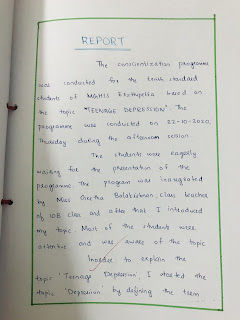 REPORT
The conscientization programme
was conducted for the tenth standard
students of MGHHS based on
the topic "TEENAGE DEPRESSION". The
programme was conducted on 22-10-2020,
Thursday during the afternoon session.
The students were eagerly
waiting for the presentation of the
programme. The program was inaugurated
by Miss Geetha Balakrishnan, class teacher
of 10B class and after that I introduced
my topic. Most of the students were
attentive and was aware of the topic
Inorder to explain the
topic 'Teenage Depression', I started the
topic 'Depression' by defining the term.